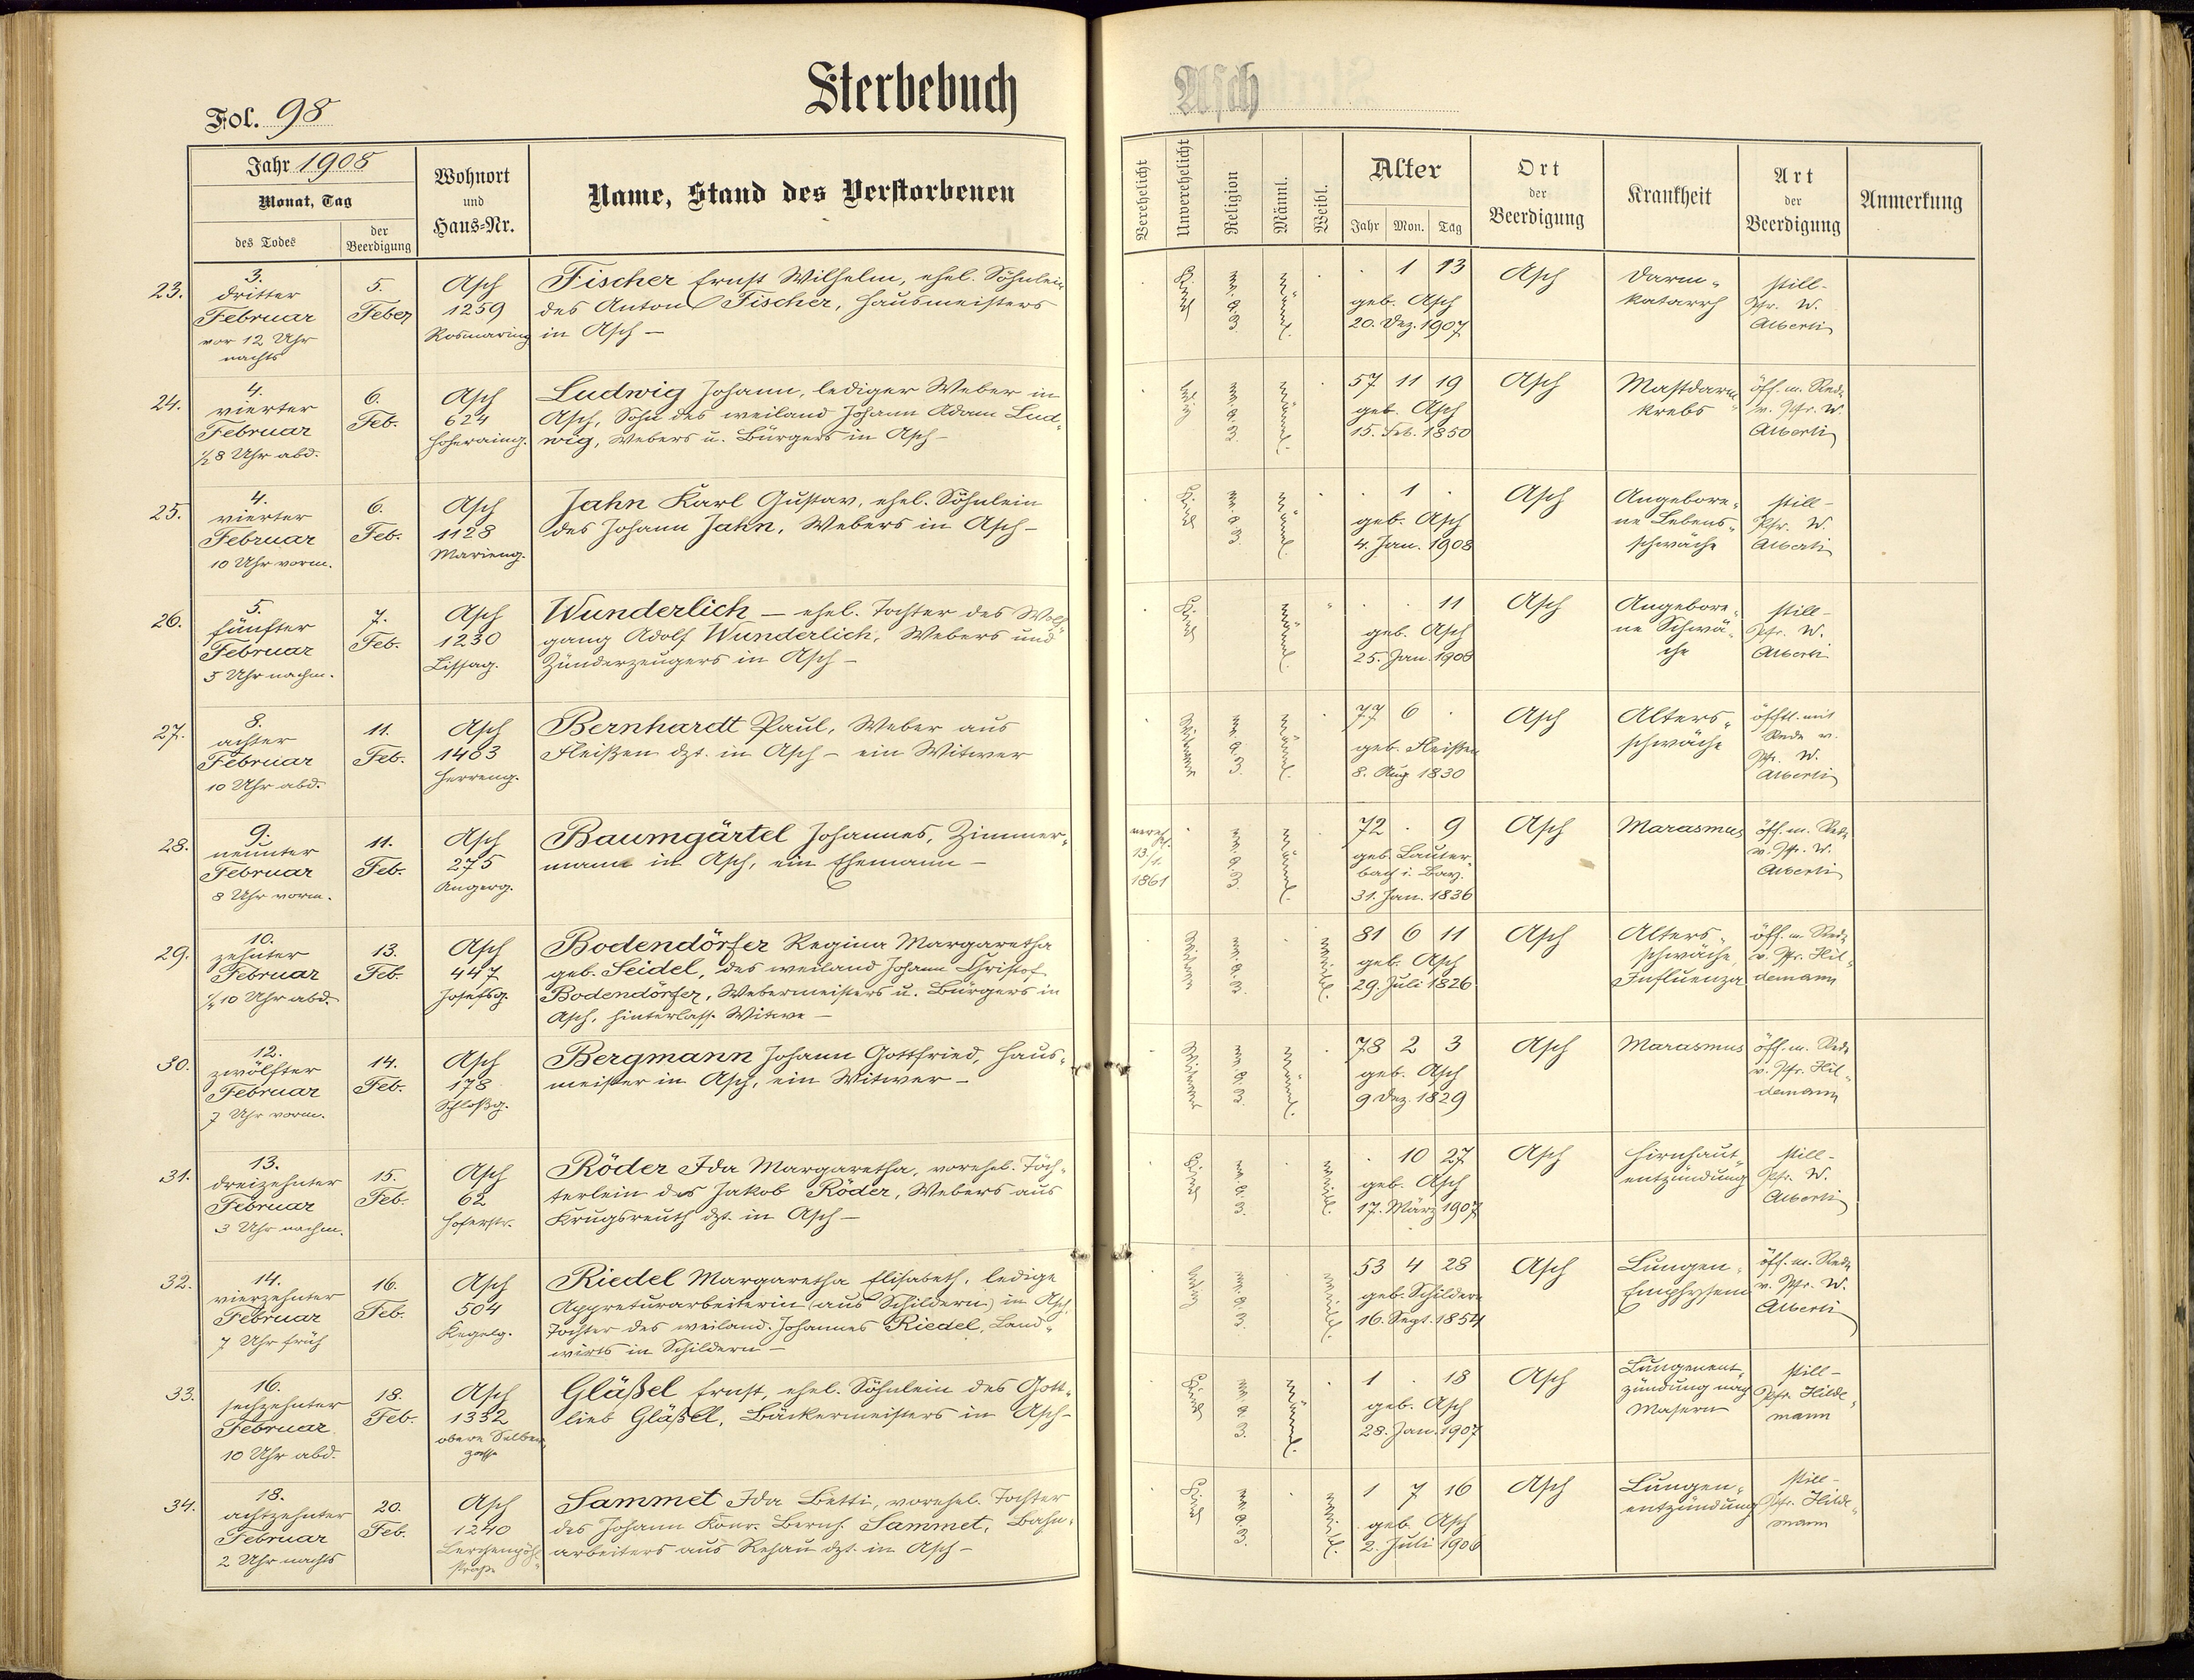 Sterbebuch
Asch
Fol. 98
Jahr 1908
Monat, Tag
des Todes
der Beerdigung
Wohnort
und
Haus-Nr.
Name, Stand des Verstorbenen
Verehelicht
Unverehelicht
Religion
Männl.
Weibl.
Alter
Jahr Mon. Tag
Ort
der
Beerdigung
Krankheit
Art
der
Beerdigung
Anmerkung
23.
3.
dritter
Februar
vor 12 Uhr
nachts
5.
Feber
Asch
1259
Rosmaring
Fischer Ernst Wilhelm, ehel. Söhnlein
des Anton Fischer, Hausmeisters
in Asch –
Kind
männl.
1 13
geb. Asch
20. Dez. 1907
Asch
Darm-
katarrh
still-
Pfr. W.
Alberti
24.
4.
vierter
Februar
½8 Uhr abd.
6.
Feb.
Asch
624
Hoheraing.
Ludwig Johann, lediger Weber in
Asch, Sohn des weiland Johann Adam Lud-
wig, Webers u. Bürgers in Asch –
ledig
männl.
57 11 19
geb. Asch
15. Feb. 1850
Asch
Mastdarm-
krebs
öff. m. Rede
v. Pfr. W.
Alberti
25.
4.
vierter
Februar
10 Uhr vorm.
6.
Feb.
Asch
1128
Marieng.
Jahn Karl Gustav, ehel. Söhnlein
des Johann Jahn, Webers in Asch –
Kind
männl.
1
geb. Asch
4. Jan. 1908
Asch
Angebore-
ne Lebens-
schwäche
still-
Pfr. W.
Alberti
26.
5.
fünfter
Februar
5 Uhr nachm.
7.
Feb.
Asch
1230
Lissag.
Wunderlich – ehel. Tochter des Wolf-
gang Adolf Wunderlich, Webers und
Zünderzeugers in Asch –
Kind
männl.
11
geb. Asch
25. Jan. 1908
Asch
Angebore-
ne Schwä-
che
still-
Pfr. W.
Alberti
27.
8.
achter
Februar
10 Uhr abd.
11.
Feb.
Asch
1483
Herreng.
Bernhardt Paul, Weber aus
Fleißen dzt. in Asch – ein Witwer
Witwer
männl.
77 6
geb. Fleißen
8. Aug 1830
Asch
Alters-
schwäche
öfftl. mit
Rede v.
Pfr. W.
Alberti
28.
9.
neunter
Februar
8 Uhr vorm.
11.
Feb.
Asch
275
Angerg.
Baumgärtel Johannes, Zimmer-
mann in Asch, ein Ehemann –
vereh.
13/1.
1861
männl.
72 . 9
geb. Lauter-
bach i. Bay.
31. Jan. 1836
Asch
Marasmus
öff. m. Rede
v. Pfr. W.
Alberti
29.
10.
zehnter
Februar
13.
Feb.
Asch
447
Josefsg.
Bodendörfer Regina Margaretha
geb. Seidel, des weiland Johann Christof
Bodendörfer, Webermeisters u. Bürgers in
Asch, hinterlass. Witwe –
Witwe
weibl.
81 6 11
geb. Asch
29. Juli 1826
Asch
Alters-
schwäche,
Influenza
öff. m. Rede
v. Pfr. Hil-
demann
30.
12.
zwölfter
Februar
7 Uhr vorm.
14.
Feb.
Asch
178
Schloßg.
Bergmann Johann Gottfried, Haus-
meister in Asch, ein Witwer –
Witwer
männl.
78 2 3
geb. Asch
9 Dez. 1829
Asch
Marasmus
öff. m. Rede
v. Pfr. Hil-
demann
31.
13.
dreizehnter
Februar
3 Uhr nachm.
15.
Feb.
Asch
62
Hoferstr.
Röder Ida Margaretha, vorehel. Töch-
terlein des Jakob Röder, Webers aus
Krugsreuth dzt. in Asch –
Kind
weibl.
10 27
geb. Asch
17. März 1907
Asch
Hirnhaut-
entzündung
still-
Pfr. W.
Alberti
32.
14.
vierzehnter
Februar
7 Uhr früh
16.
Feb.
Asch
504
Kegelg.
Riedel Margaretha Elisabeth, ledige
Appreturarbeiterin (aus Schildern) in Asch
Tochter des weiland Johannes Riedel, Land-
wirts in Schildern –
ledig
weibl.
53 4 28
geb. Schildern
16. Sept. 1854
Asch
Lungen-
Emphysem
öff. m. Rede
v. Pfr. W.
Alberti
33.
16.
sechzehnter
Februar
10 Uhr abd.
18.
Feb.
Asch
1332
obere Selber-
gasse
Gläßel Ernst, ehel. Söhnlein des Gott-
lieb Gläßel, Bäckermeisters in Asch –
Kind
männl.
1 . 18
geb. Asch
28. Jan. 1907
Asch
Lungenent-
zündung nach
Masern
still-
Pfr. Hilde-
mann
34.
18.
achtzehnter
Februar
2 Uhr nachts
20.
Feb.
Asch
1240
Lerchenpöhl-
straße
Sammet Ida Betti, vorehel. Tochter
des Johann Konr. Bernh. Sammet, Bahn-
arbeiters aus Rehau dzt. in Asch –
Kind
weibl.
1 7 16
geb. Asch
2. Juli 1906
Asch
Lungen-
entzündung
still-
Pfr. Hilde-
mann